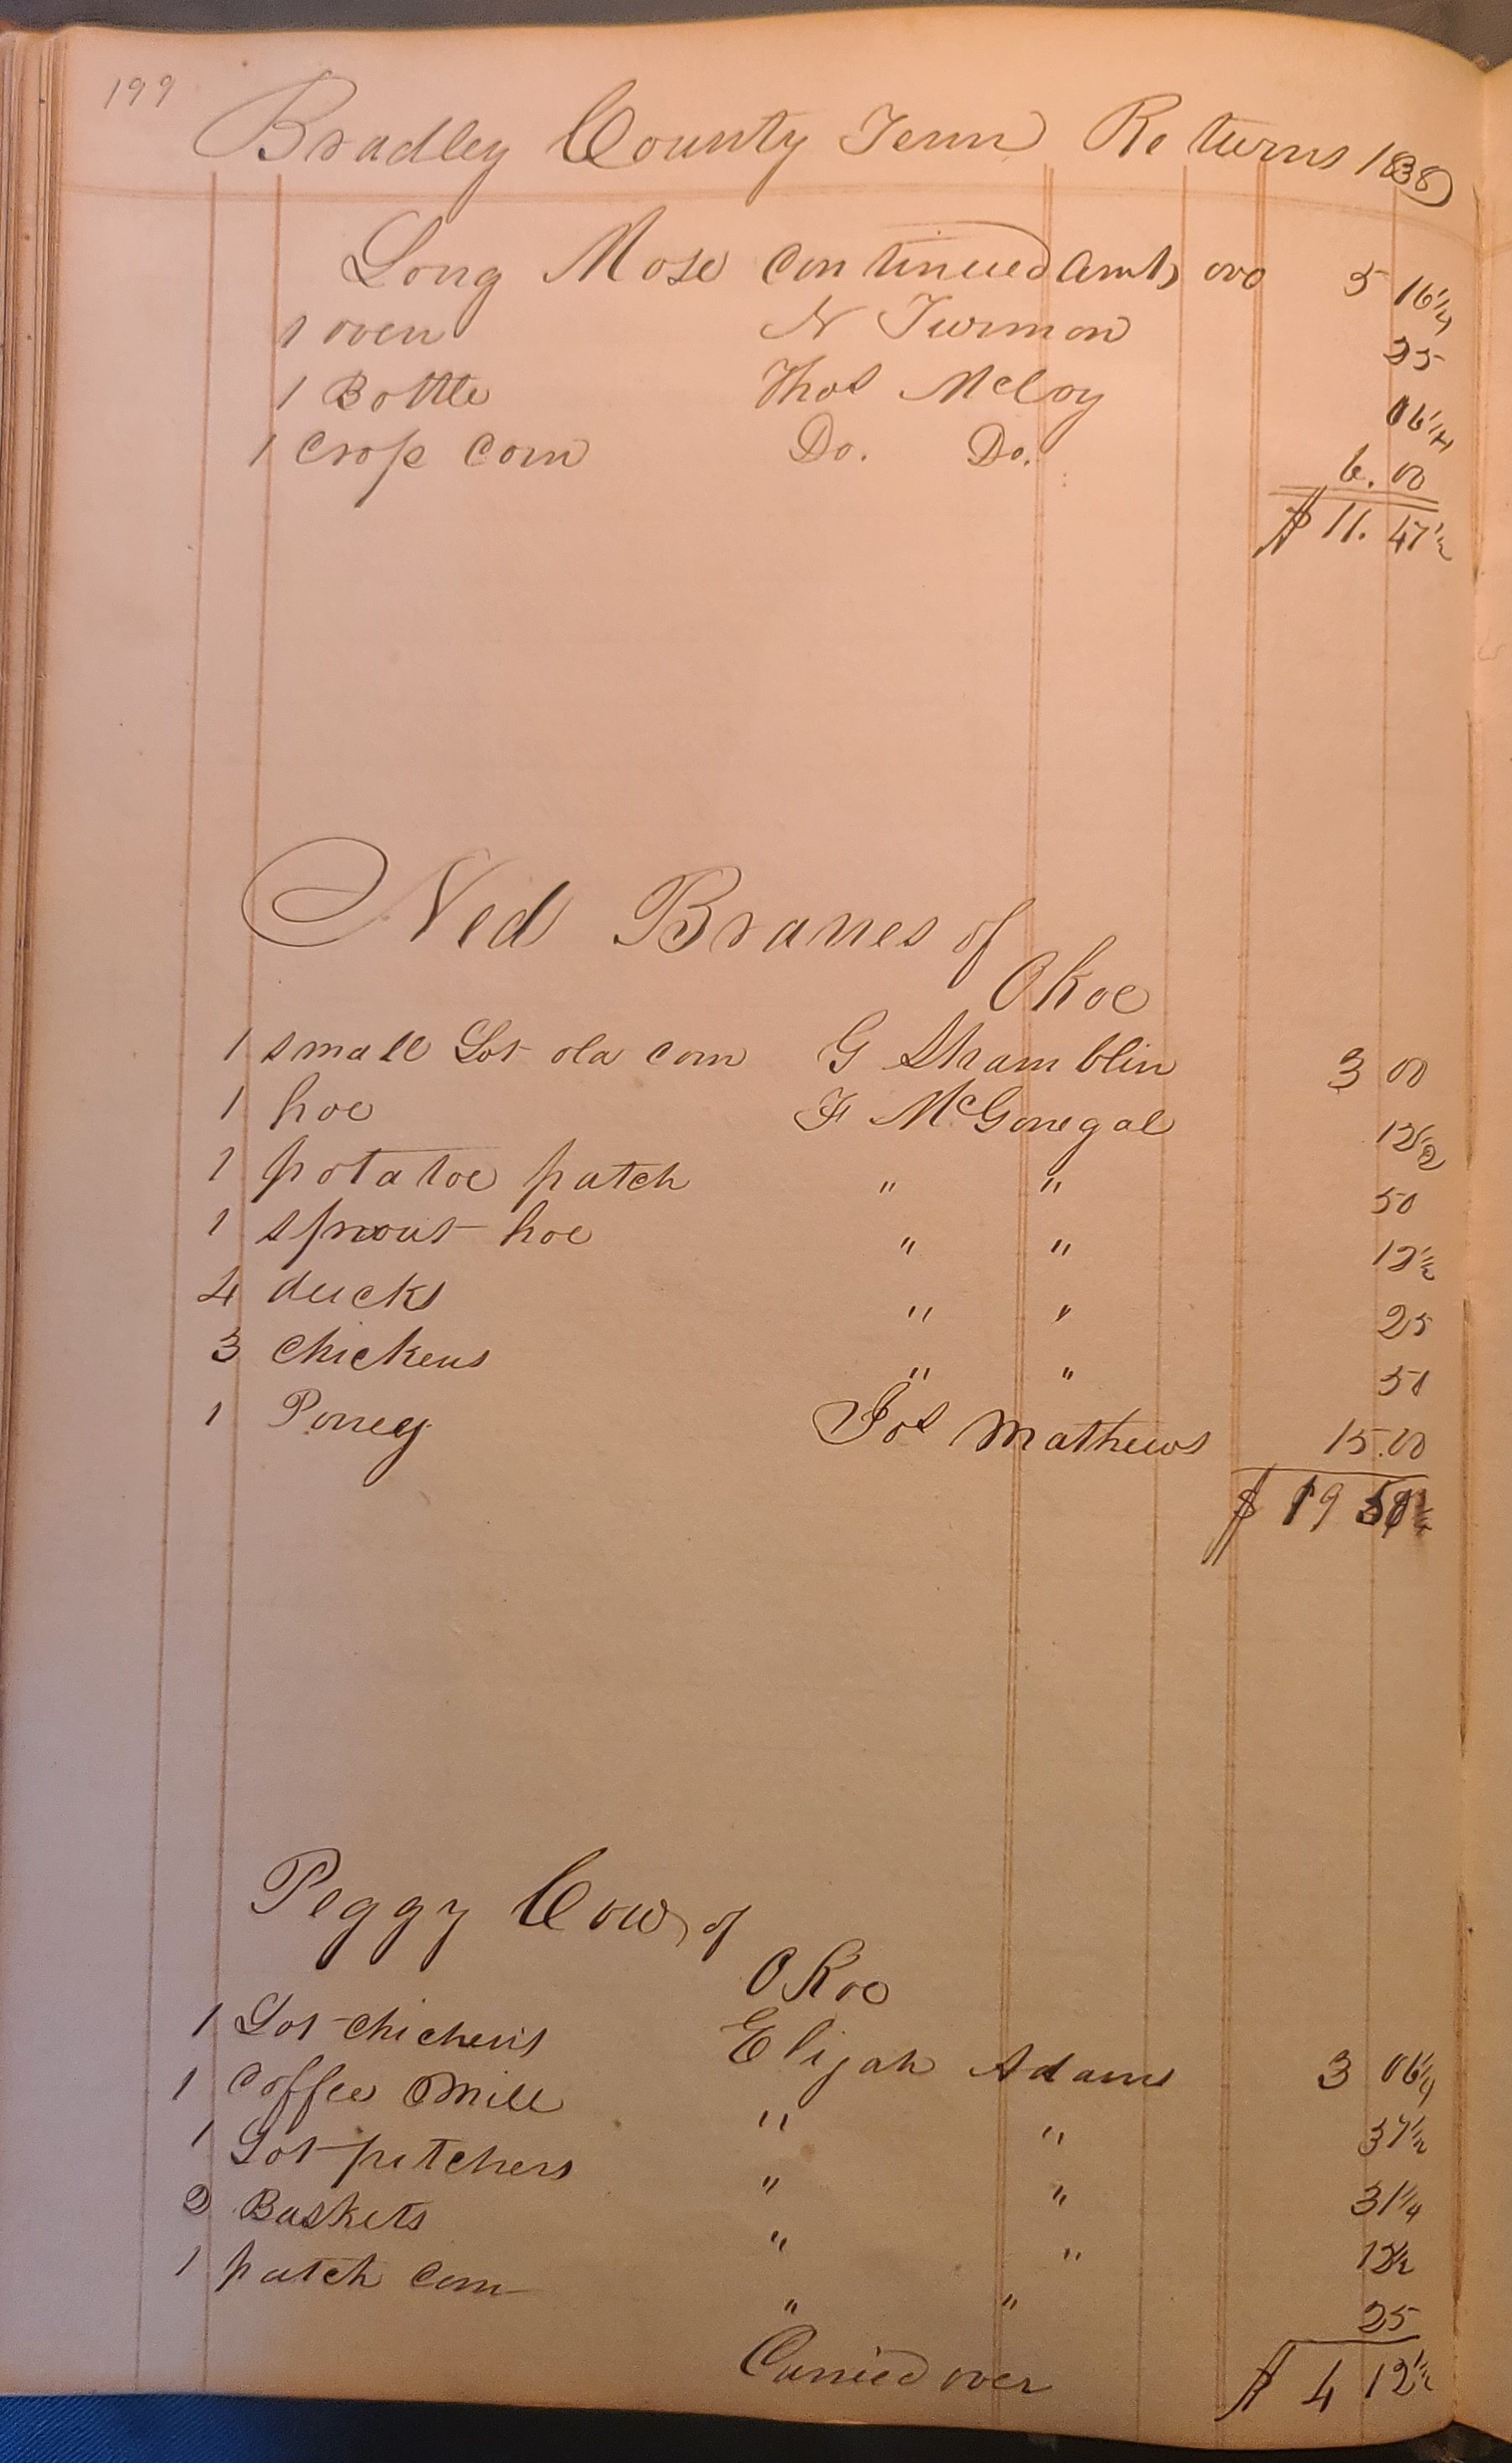 199
Bradley County Tenn Returns 1838
Long Mose Continued Amt, ovo 5 16 1/4
1 oven N Turmon 25
1 Bottle Thos McCoy 06 1/4
1 Crop Corn Do. Do. 6.00
$ 11. 47 1/2
Ned Branes of
Okoe
1 small Lot old corn G Shamblin 3 00
1 hoe F McGonegal 12 1/2
1 potatoe patch " " 50
1 sprout hoe " " 12 1/2
4 ducks " " 25
3 Chickens " " 51
1 Poney Jos Mathews 15.00
$ 19
Peggy Cow, of
OKoe
1 Lot Chickens Elijah Adams 3 06 1/4
1 Coffee Mill " " 37 1/2
1 Lot pitchers " " 31 1/4
2 Baskets " " 12 1/2
1 patch Corn " " 25
Carried over $ 4 12 1/2